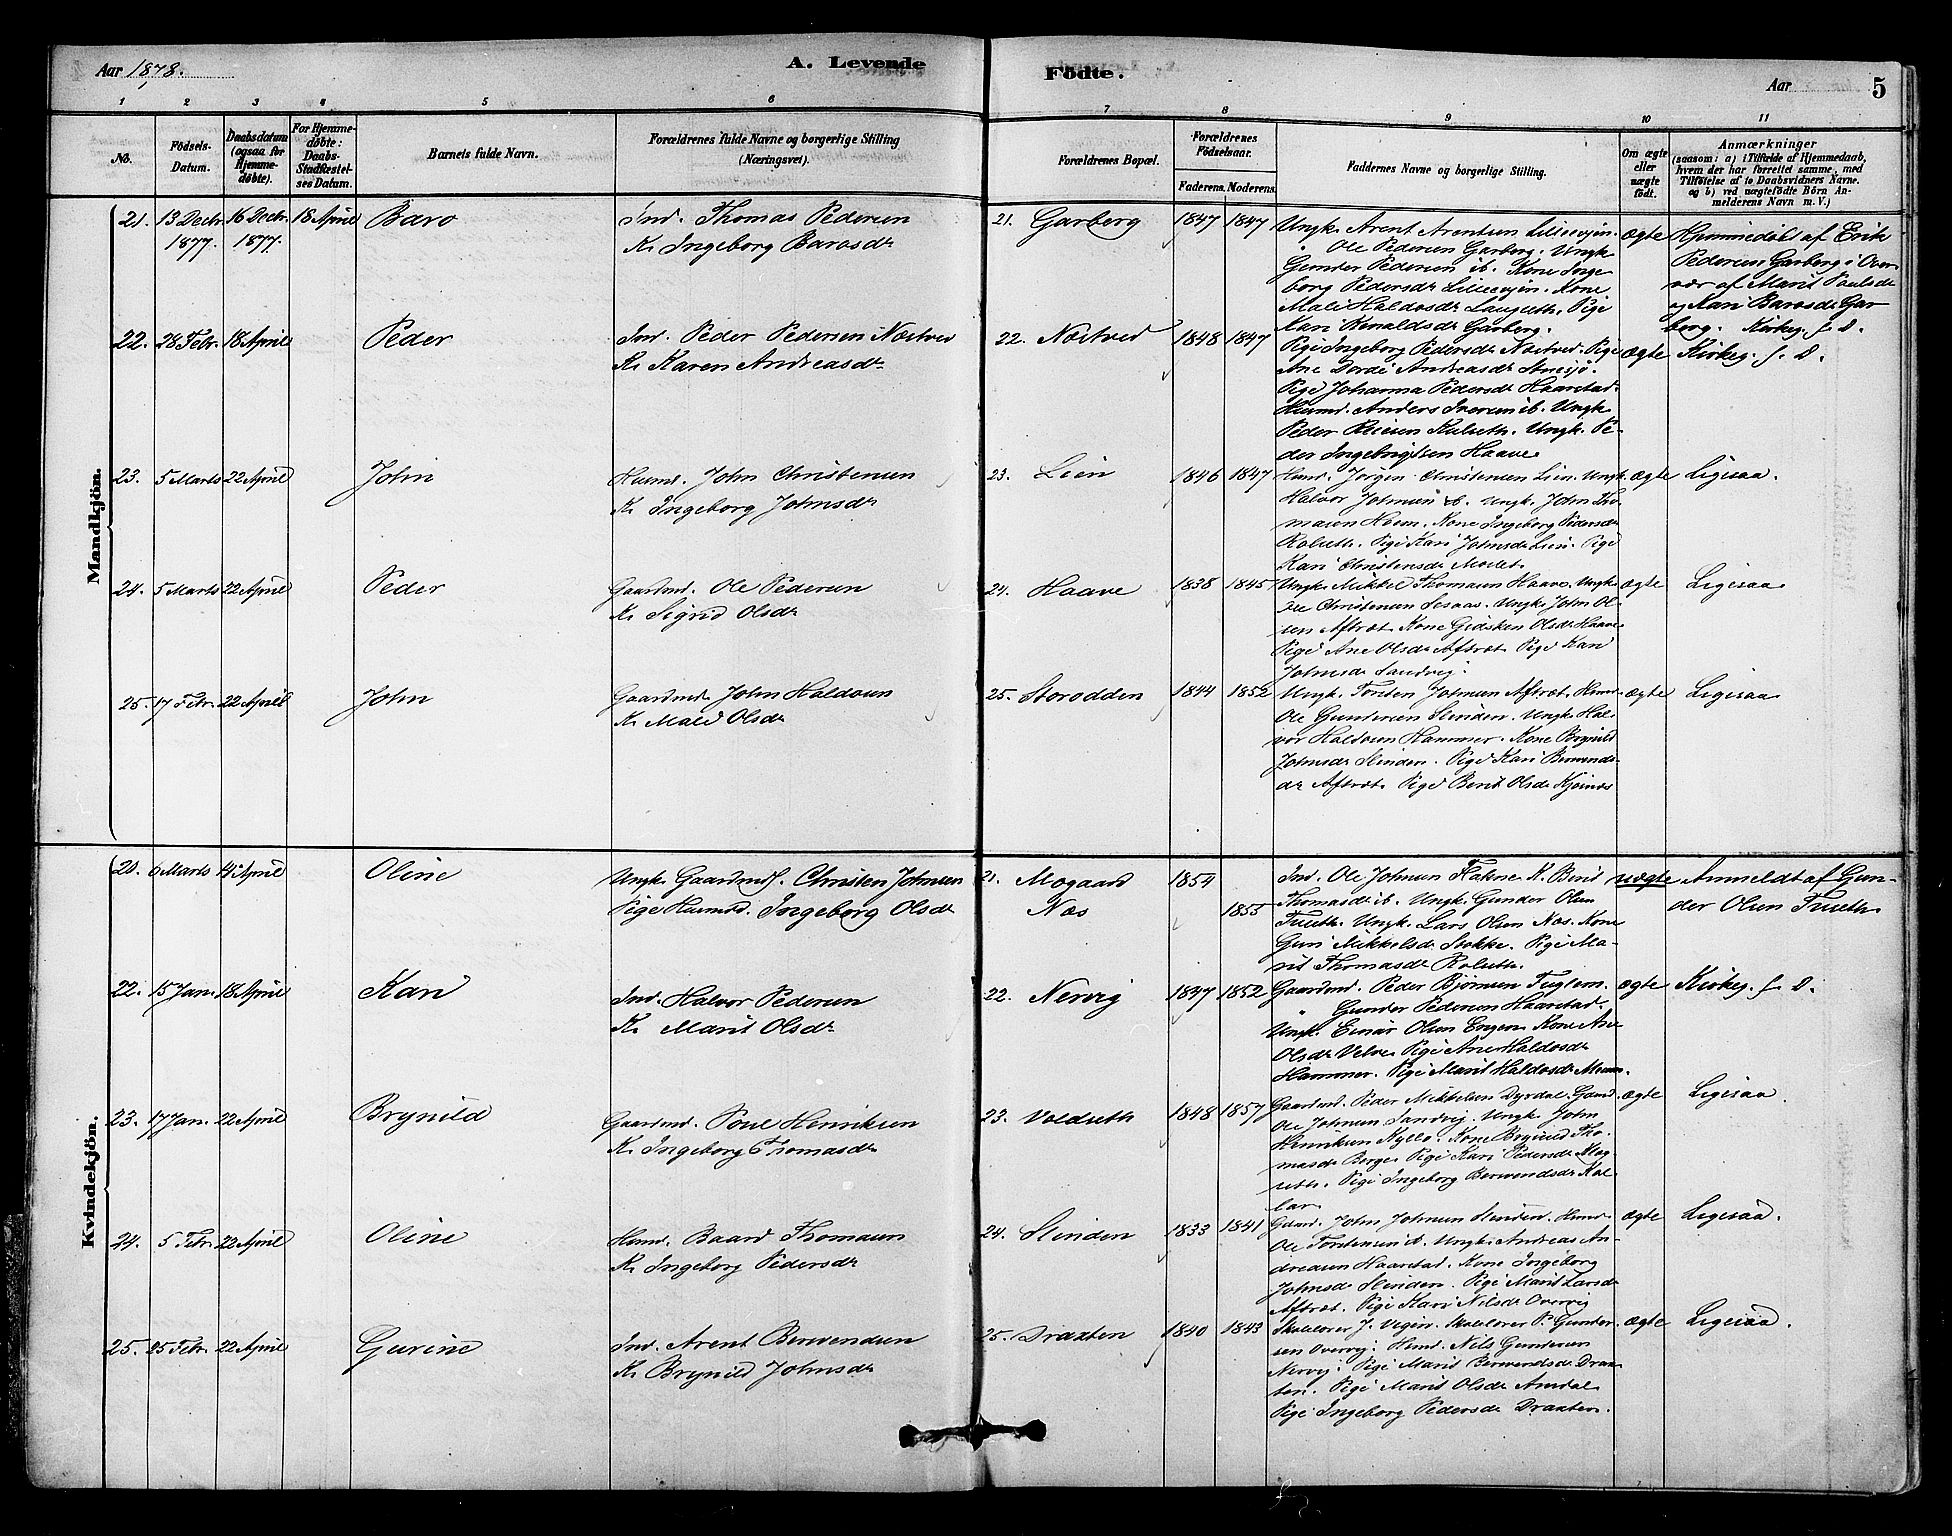 Aar 1878.
A. Levende
Födte.
Aar
5
1 2 3 4 5 6 7 8 9 10 11
No.
Födsels-
Datum.
Daabsdatum
(ogsaa for
Hjemme-
døbte).
For Hjemme-
døbte:
Daabs-
Stadfæstel-
ses Datum.
Barnets fulde Navn.
Forældrenes fulde Navne og borgerlige Stilling
(Næringsvei).
Forældrenes Bopæl.
Forældrenes
Födselsaar.
Faderens. Moderens.
Faddernes Navne og borgerlige Stilling.
Om ægte
eller
uægte
født.
Anmærkninger
(saasom: a) i Tilfælde af Hjemmedaab,
hvem der har forrettet samme, med
Tilföielse af to Daabsvidners Navne.
og b) ved uægtefödte Börn An-
melderens Navn m. V.)
Mandkjön.
21. 13 Decbr. 1877. 16 Decbr. 1877. 18 April
Baro
Ind. Thomas Pedersen
K. Ingeborg Barosdr
21. Garberg 1847 1847
Ungk. Arent Arentsen Lillevejen.
" Ole Pedersen Garberg. Ungk.
Gunder Pedersen ib. Kone Inge
borg Pedersdr Lillevejen. Kone
Mali Haldosdr Langseth. Pige
Kari Renaldsdr Garberg.
ægte
Hjemmedøbt af Erik
Pedersen Garberg i Over-
vær af Marit Paulsdr
og Kari Barosdr Gar
berg. Kirkeg. s. D.
22. 28 Febr. 18 April
Peder
Ind. Peder Pedersen Næstved
K. Karen Andreasdr
22. Næstved 1848 1847
Pige Ingeborg Pedersdr Næstved. Pige
Ane Dorde Andreasdr
Pige Johanna Pedersdr Haarstad.
Husmd. Anders Iversen ib. Ungk.
Peder Kulseth. Ungk. Pe-
der Ingebrigtsen Haave
ægte
Kirkeg. s. D.
23. 5 Marts 22 April
John
Husmd. John Christensen
K. Ingeborg Johnsdr
23. Lien 1846 1847
Husmd. Jørgen Christensen Lien. Ungk.
Halvor Johnsen ib. Ungk. John Tho-
masen Moen. Kone Ingeborg Pedersdr
Rolseth. Pige Kari Johnsdr Lien. Pige
Kari Christensdr Moslet.
ægte
Ligesaa.
24. 5 Marts 22 April
Peder
Gaardmd. Ole Pedersen
K. Sigrid Olsdr
24. Haave 1838 1845
Ungk. Mikkel Thomasen Haave. Ungk.
Ole Christensen Sesaas. Ungk. John Ol-
sen Aftret. Kone Gidsken Olsdr Haave
Pige Ane Olsdr Aftret. Pige Kari
Johnsdr Sandvig.
ægte
Ligesaa
25. 17 Febr. 22 April
John
Gaardmd. John Haldosen
K. Mali Olsdr
25. Storodden 1844 1852
Ungk. Torsten Johnsen Aftret. Husmd.
Ole Gundersen Slinden. Ungk. Hal-
vor Haldosen Hammer. Kone Brynild
Johnsdr Slinden. Pige Kari Bernends-
dr Aftret. Pige Berit Olsdr Kjøsnæs
ægte
Ligesaa
Kvindekjön.
20. 6 Marts 14 April
Oline
Ungk. Gaardmds. Christen Johnsen
Pige Husmd. Ingeborg Olsdr
21. Mogaard 1854
Næs 1855
Ind. Ole Johnsen Flakne K. Berit
Thomasdr ib. Ungk. Gunder Olsen
Tuseth. Ungk. Lars Olsen Næs. Kone
Guri Mikkelsdr Stokke. Pige Ma-
rit Thomasdr Rolseth.
uægte
Anmeldt af Gun-
der Olsen Tuseth
22. 15 Jan. 18 April
Kari
Ind. Halvor Pedersen
K. Marit Olsdr
22. Nervig 1847 1852
Gaardmd. Peder Bjørnsen Fuglem.
" Gunder Pedersen Haarstad.
Ungk. Einar Olsen Engen. Kone Ane
Olsdr Velve. Pige Ane Haldosdr
Hammer. Pige Marit Haldosdr Moen.
ægte
Kirkeg. s. D.
23. 17 Jan. 22 April
Brynild
Gaardmd. Poul Henriksen
K. Ingeborg Thomasdr
23. Voldseth 1848 1857
Gaardmd. Peder Mikkelsen Dyrdal. Gaard.
Ole Johnsen Sandvig. Ungk. John
Henriksen Nyllo. Kone Brynild Tho-
masdr Borge. Pige Kari Pedersdr Mog-
seth. Pige Ingeborg Bernendsdr Kal-
lar.
ægte
Ligesaa.
24. 5 Febr. 22 April
Oline
Husmd. Baard Thomasen
K. Ingeborg Pedersdr
24. Slinden 1833 1841
Gaard. John Johnsen Slinden. Husmd.
Ole Torstensen ib. Ungk. Andreas An-
dreasen Haarstad. Kone Ingeborg
Johnsdr Slinden. Pige Marit Larsdr
Aftret. Pige Kari Nilsdr Overvig
ægte
Ligesaa.
25. 25 Febr. 22 April
Gurine
Ind. Arent Bernendsen
K. Brynild Johnsdr
25. Draxten 1840 1843
Skolelærer J. Vigen. Skolelærer P. Gunder-
sen Overvig. Husmd. Nils Gundersen
Nervig. Pige Marit Bernendsdr Drax-
ten. Pige Marit Olsdr Amdal
Pige Ingeborg Pedersdr Draxten.
ægte
Ligesaa.